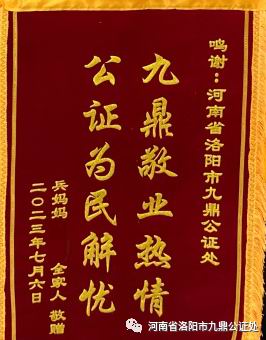 鸣谢：河南省洛阳市九鼎公证处
九鼎敬业热情
公证为民解忧
兵妈妈 全家人 敬赠
二〇二三年七月六日
河南省洛阳市九鼎公证处